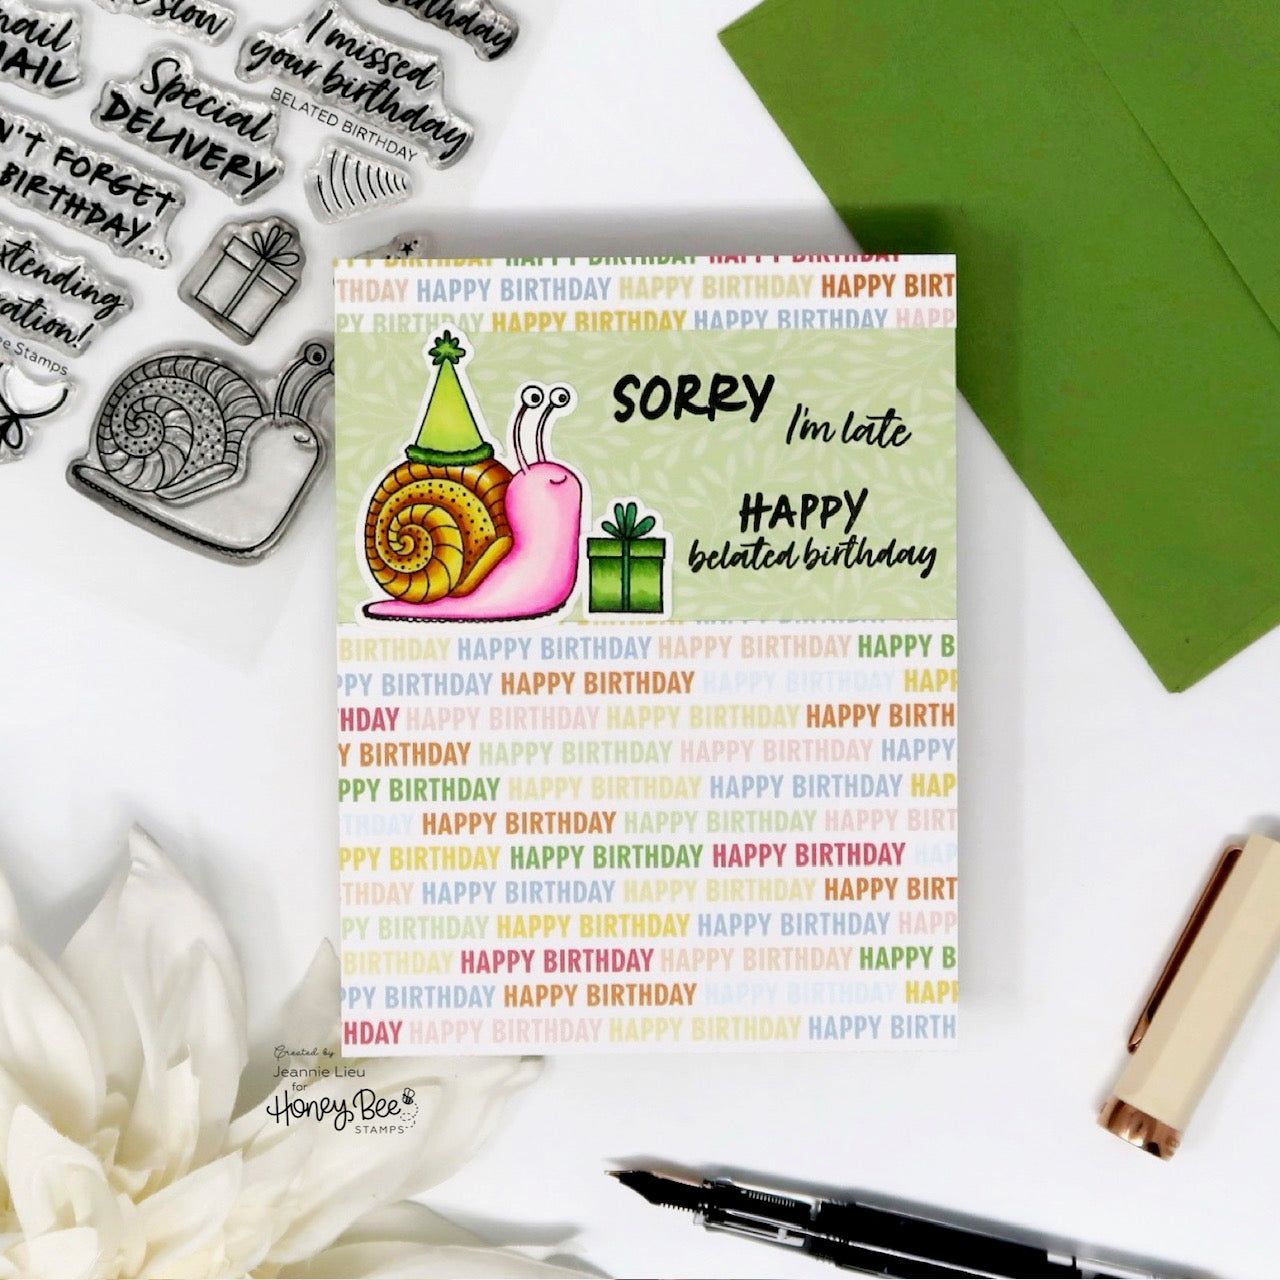 slow
MAIL
Special
DELIVERY
I missed
your birthday
BELATED BIRTHDAY
birthday
FORGET
BIRTHDAY...
Stamps
HAPPY BIRTHDAY HAPPY BIRTHDAY
HAPPY BIRTHDAY HAPPY BIRTHDAY HAPPY BIRT
BIRTHDAY HAPPY BIRTHDAY HAPPY BIRTHDAY HAPP
SORRY
I'm late
HAPPY
belated birthday
BIRTHDAY HAPPY BIRTHDAY HAPPY BIRTHDAY HAPPY B
PPY BIRTHDAY HAPPY BIRTHDAY HAPPY BIRTHDAY HAPP
HDAY HAPPY BIRTHDAY HAPPY BIRTHDAY HAPPY BIRTH
Y BIRTHDAY HAPPY BIRTHDAY HAPPY BIRTHDAY HAPPY
PPY BIRTHDAY HAPPY BIRTHDAY HAPPY BIRTHDAY HAP
THDAY HAPPY BIRTHDAY HAPPY BIRTHDAY HAPPY BIRT
PPY BIRTHDAY HAPPY BIRTHDAY HAPPY BIRTHDAY HAP
THDAY HAPPY BIRTHDAY HAPPY BIRTHDAY HAPPY BIRT
PY BIRTHDAY HAPPY BIRTHDAY HAPPY BIRTHDAY HAPP
BIRTHDAY HAPPY BIRTHDAY HAPPY BIRTHDAY HAPPY B
PPY BIRTHDAY HAPPY BIRTHDAY HAPPY BIRTHDAY HAPP
HDAY HAPPY BIRTHDAY HAPPY BIRTHDAY HAPPY BIRTH
Created by
Jeannie Lieu
for
Honey Bee
STAMPS